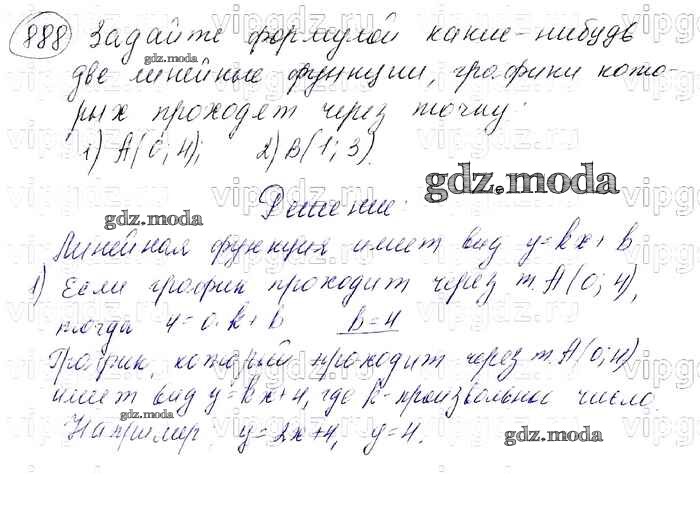 888 Задайте формулой какие-нибудь
две линейные функции, графики кото-
рых проходят через точку:
1) A(0; 4); 2) B(1; 3).
gdz.moda
gdz.moda
Решение:
gdz.moda
Линейная функция имеет вид y=kx+b
1) Если график проходит через т. A(0; 4),
тогда 4=0·k+b b=4
График, который проходит через т. A(0; 4)
имеет вид y=kx+4, где k-произвольное число
gdz.moda
Например: y=2x+4, y=4.
gdz.moda